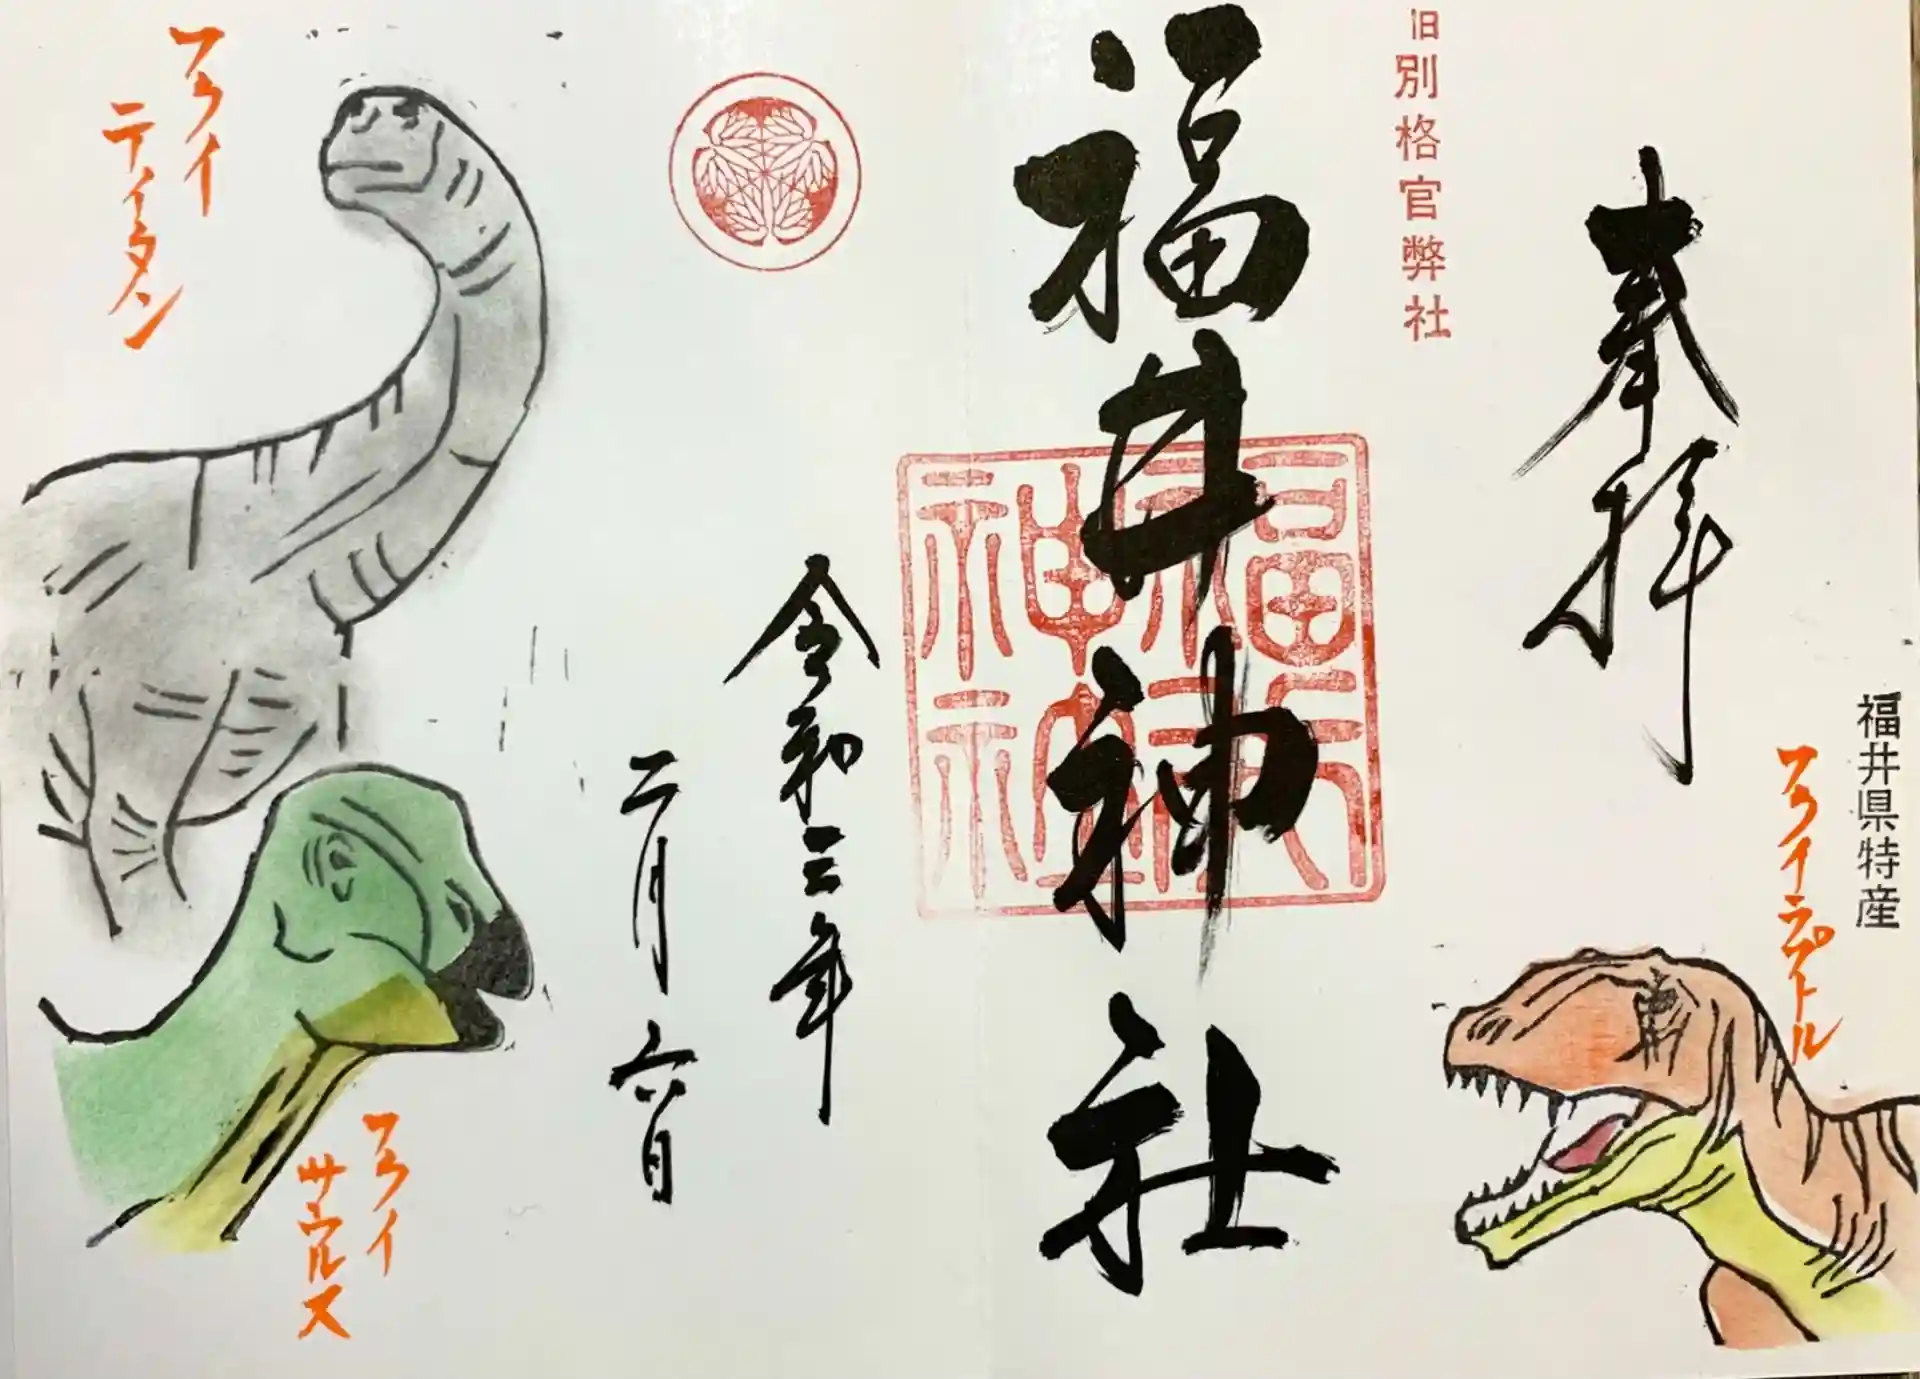 奉拝
福井県特産
フクイラプトル
旧別格官弊社
福井神社
令和三年
二月六日
フクイ
ティタン
フクイ
サウルス